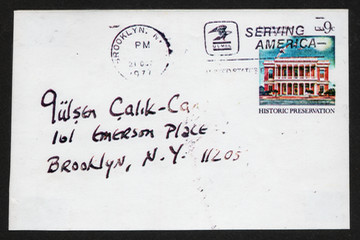 BROOKLYN, N.Y.
PM
1977
U.S. MAIL
SERVING
AMERICA
9¢
HISTORIC PRESERVATION
Gülsen Çalik-Ca
101 EMERSON PLACE
BROOKLYN, N.Y. 11205